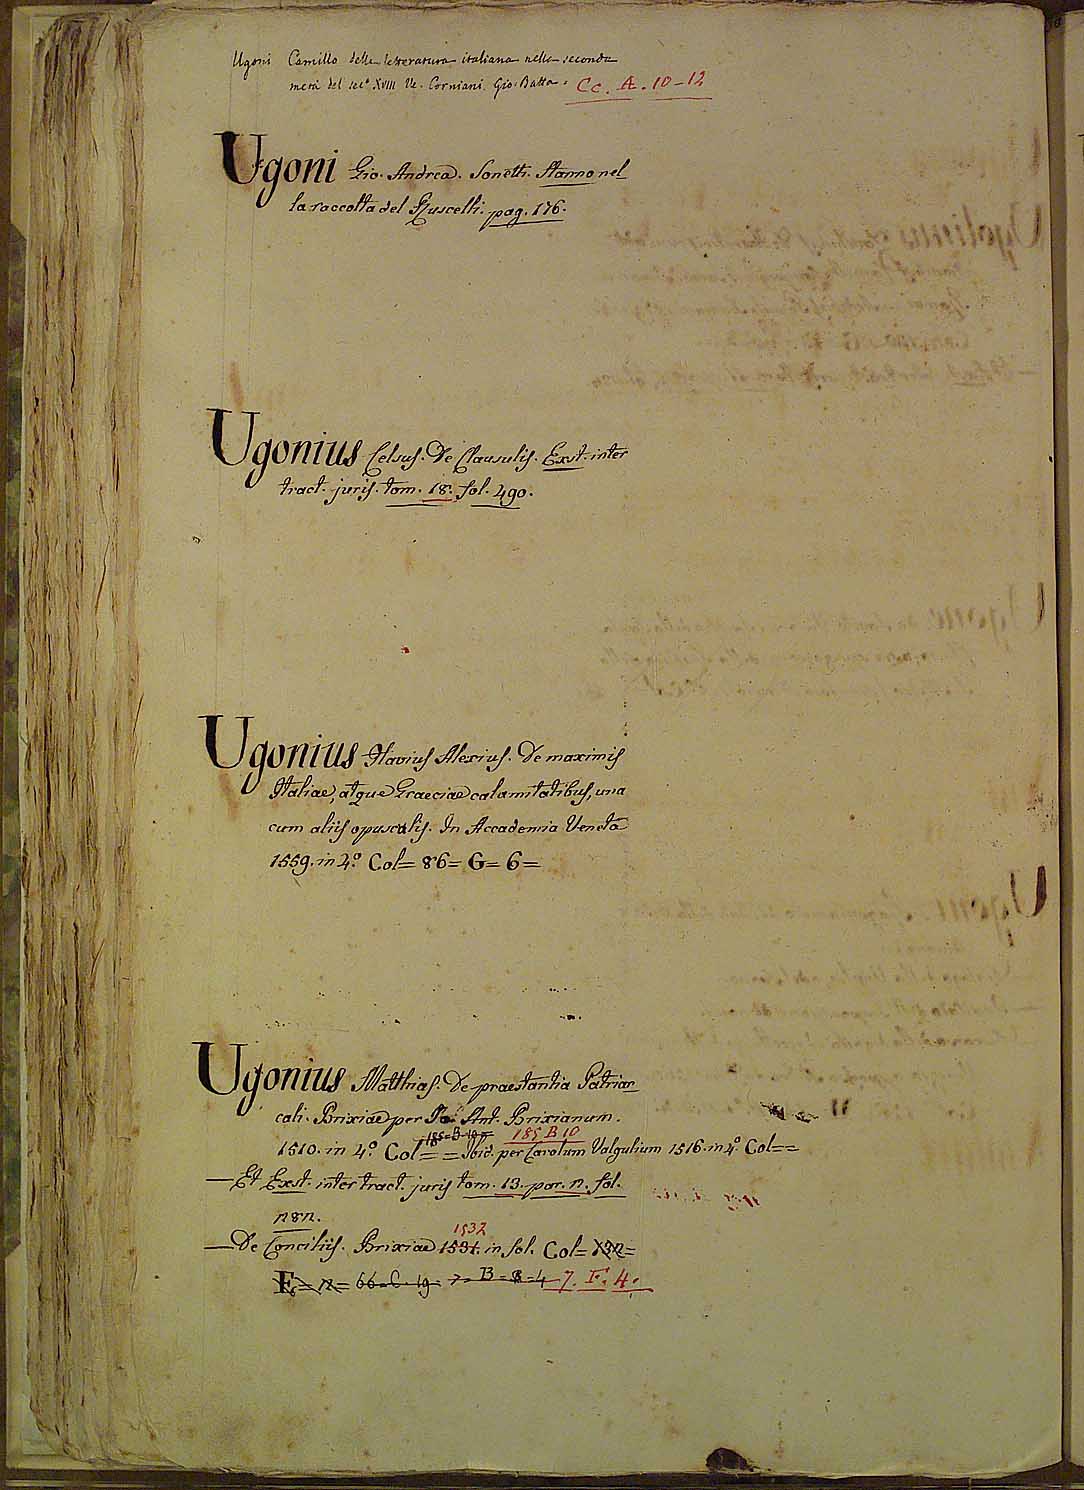 Ugoni Camillo della letteratura italiana nella seconda
metà del sec.º XVIII Ve. Corniani Gio. Batta. Cc. A. 10-12
Ugoni Gio. Andrea. Sonetti. Stanno nel
la raccolta del Ruscelli. pag. 176.
Ugonius Celsus. De Clausulis. Exst. inter
tract. juris. tom. 18. fol. 490.
Ugonius Flavius Alexius. De maximis
Italiae, atque Graeciae calamitatibus, una
cum aliis opusculis. In Accademia Veneta
1559. in 4º. Col= 86= G= 6=
Ugonius Matthias. De praestantia Patriar
cali. Brixiae per Jo: Ant. Brixianum.
185 B 10
1510. in 4º. Col= = Ibid. per Carolum Valgulium 1516. in 4º. Col==
— Et Exst. inter tract. juris tom. 13. par. n. fol.
n8n.
1532
— De Conciliis. Brixiae 1531. in fol. Col= 132=
E= n= 66=C. 19= 7= B= 8=4 7. F. 4.